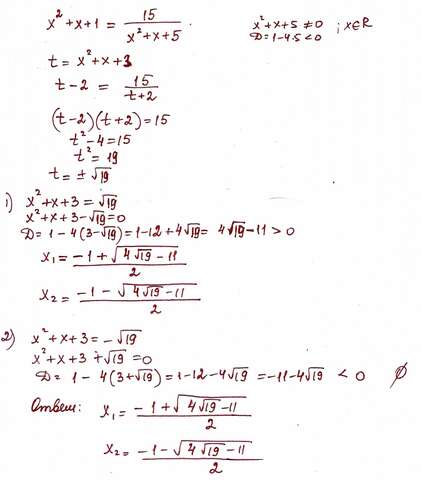 x² + x + 1 = 15 / (x² + x + 5)
x² + x + 5 ≠ 0 ; x ∈ R
D = 1 - 4·5 < 0
t = x² + x + 3
t - 2 = 15 / (t + 2)
(t - 2)(t + 2) = 15
t² - 4 = 15
t² = 19
t = ± √19
1) x² + x + 3 = √19
x² + x + 3 - √19 = 0
D = 1 - 4(3 - √19) = 1 - 12 + 4√19 = 4√19 - 11 > 0
x₁ = (-1 + √(4√19 - 11)) / 2
x₂ = (-1 - √(4√19 - 11)) / 2
2) x² + x + 3 = -√19
x² + x + 3 + √19 = 0
D = 1 - 4(3 + √19) = 1 - 12 - 4√19 = -11 - 4√19 < 0 ∅
Ответ: x₁ = (-1 + √(4√19 - 11)) / 2
x₂ = (-1 - √(4√19 - 11)) / 2